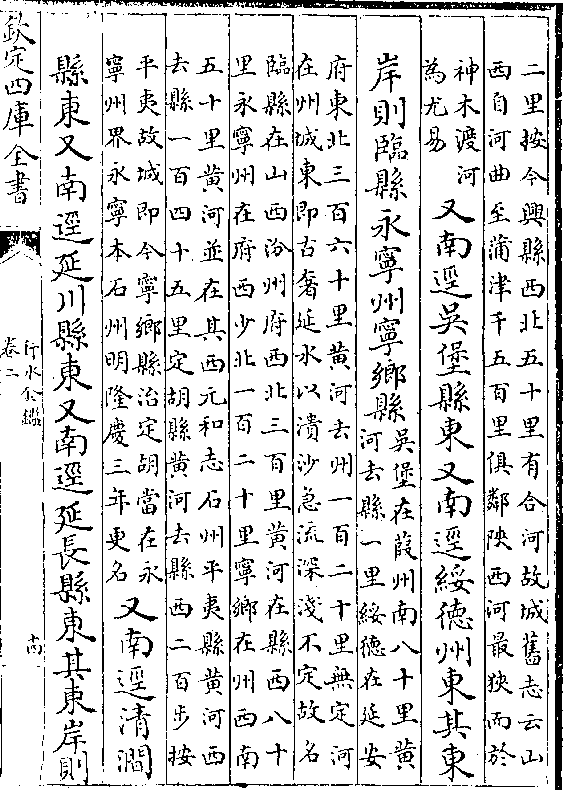 二里按今興縣西北五十里有合河故城舊志云山
西自河曲至蒲津千五百里俱鄰陝西河最狹而於
神木渡河
為尤易
又南逕吳堡縣東又南逕綏德州東其東
岸則臨縣永寧州寧鄉縣
吳堡在葭州南八十里黃
河去縣一里綏德在延安
府東北三百六十里黃河去州一百二十里無定河
在州城東即古奢延水以潰沙急流深淺不定故名
臨縣在山西汾州府西北三百里黃河在縣西八十
里永寧州在府西少北一百二十里寧鄉在州西南
五十里黃河並在其西元和志石州平夷縣黃河西
去縣一百四十五里定胡縣黃河去縣西二百步按
平夷故城即今寧鄉縣治定胡當在永
寧州界永寧本石州明隆慶三年更名
又南逕清澗
縣東又南逕延川縣東又南逕延長縣東其東岸則
欽定四庫全書
行水金鑑
卷二
十四